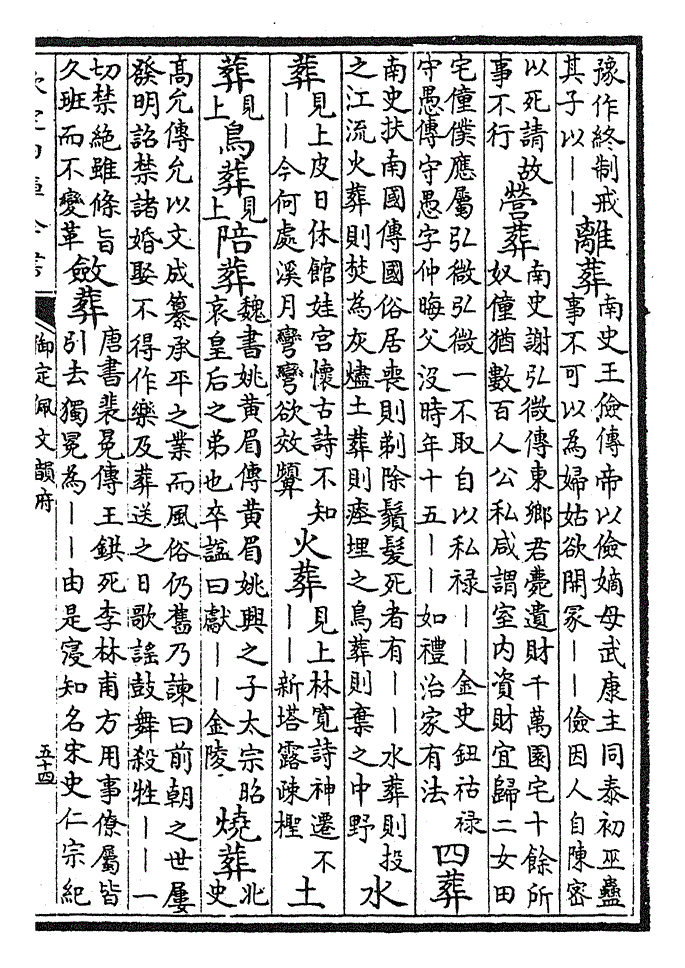 豫作終制戒其子以——離葬南史王儉傳帝以儉嫡母武康主同泰初巫蠱事不可以為婦姑欲開冢——儉因人自陳密
以死請故事不行營葬南史謝弘微傳東鄉君薨遺財千萬園宅十餘所奴僮猶數百人公私咸謂室内資財宜歸二女田
宅僮僕應屬弘微弘微一不取自以私禄——金史鈕祜禄守愚傳守愚字仲晦父没時年十五——如禮治家有法四葬
南史扶南國傳國俗居喪則剃除鬚髮死者有——水葬則投之江流火葬則焚為灰燼土葬則瘞埋之鳥葬則棄之中野水
葬見上皮日休館娃宫懷古詩不知——今何處溪月彎彎欲效顰火葬見上林寛詩神遷不——新塔露疎檉土
葬見上鳥葬見上陪葬魏書姚黄眉傳黄眉姚興之子太宗昭哀皇后之弟也卒諡曰獻——金陵燒葬北史
高允傳允以文成纂承平之業而風俗仍舊乃諫曰前朝之世屢發明詔禁諸婚娶不得作樂及葬送之日歌謠鼓舞殺牲——一
切禁絶雖條旨久班而不變革斂葬唐書裴冕傳王鉷死李林甫方用事僚屬皆引去獨冕為——由是寖知名宋史仁宗紀
欽定四庫全書
御定佩文韻府
五十四